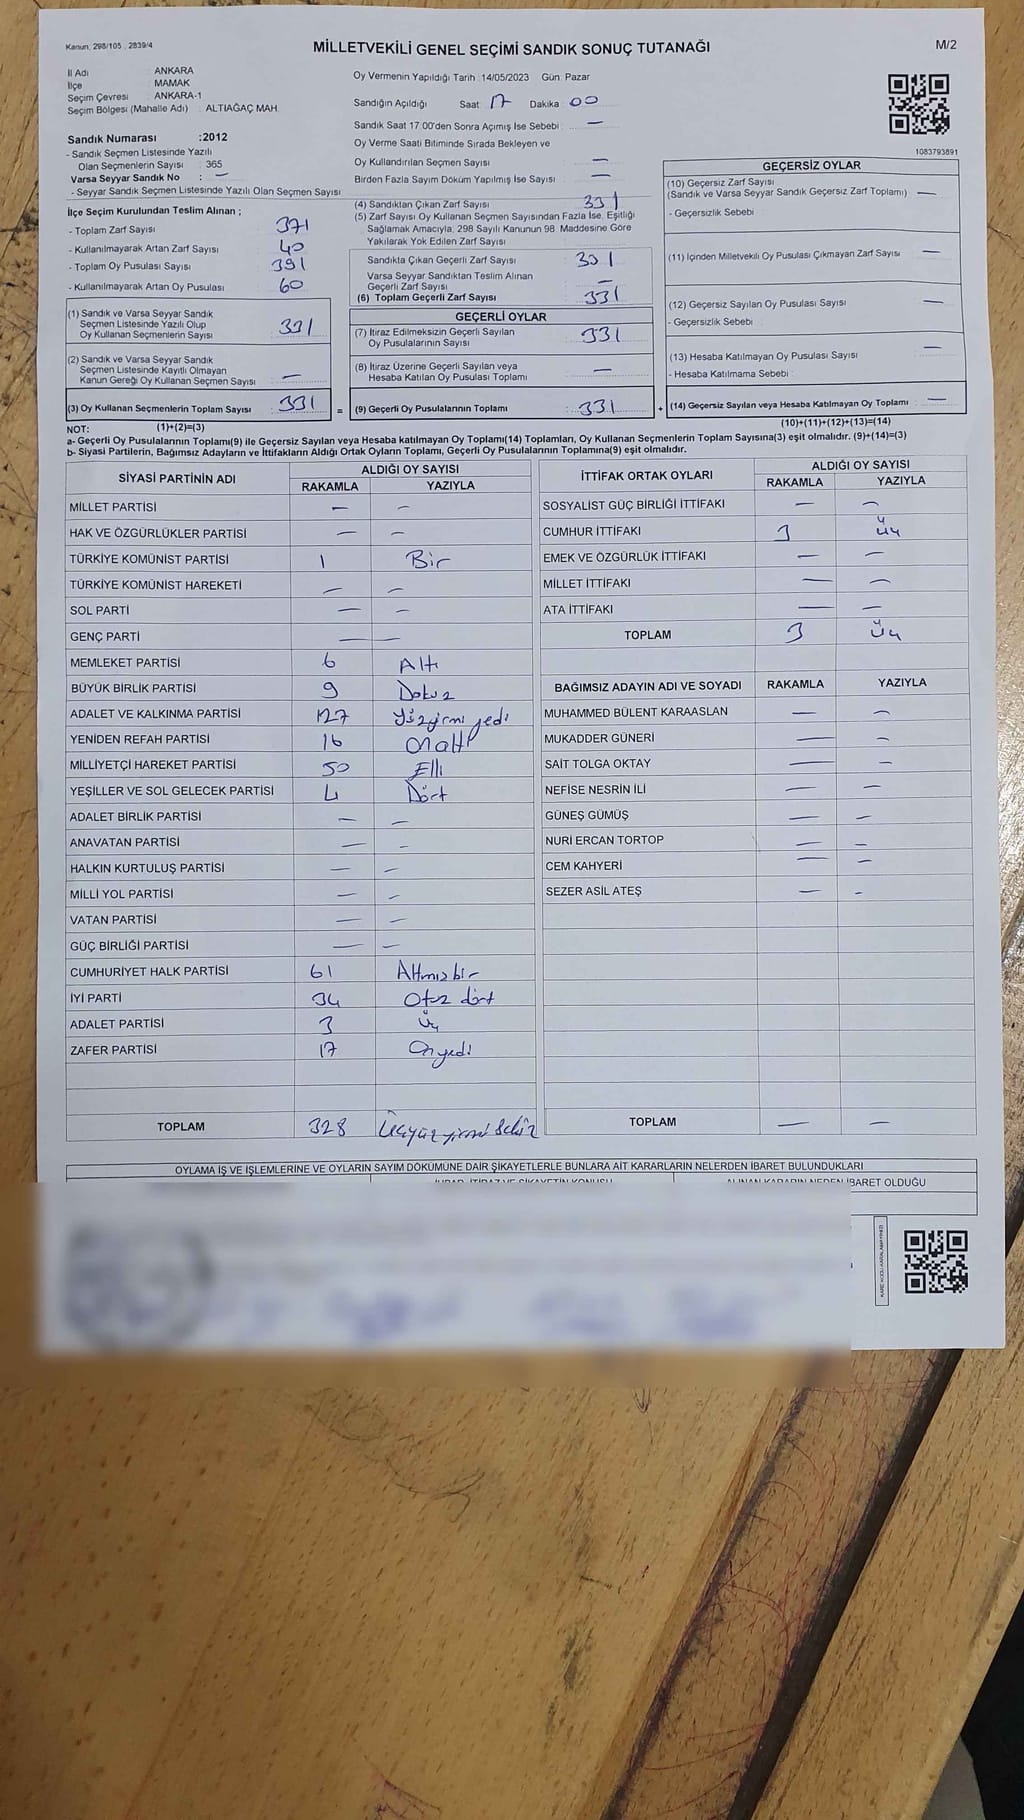 Kanun: 298/105 , 2839/4
MİLLETVEKİLİ GENEL SEÇİMİ SANDIK SONUÇ TUTANAĞI
M/2
İl Adı ANKARA
İlçe MAMAK
Seçim Çevresi ANKARA-1
Seçim Bölgesi (Mahalle Adı) ALTIAĞAÇ MAH.
Sandık Numarası :2012
- Sandık Seçmen Listesinde Yazılı
Olan Seçmenlerin Sayısı : 365
Varsa Seyyar Sandık No : —
- Seyyar Sandık Seçmen Listesinde Yazılı Olan Seçmen Sayısı
İlçe Seçim Kurulundan Teslim Alınan ;
- Toplam Zarf Sayısı 371
- Kullanılmayarak Artan Zarf Sayısı 40
- Toplam Oy Pusulası Sayısı 391
- Kullanılmayarak Artan Oy Pusulası 60
(1) Sandık ve Varsa Seyyar Sandık
Seçmen Listesinde Yazılı Olup
Oy Kullanan Seçmenlerin Sayısı 331
(2) Sandık ve Varsa Seyyar Sandık
Seçmen Listesinde Kayıtlı Olmayan
Kanun Gereği Oy Kullanan Seçmen Sayısı —
(3) Oy Kullanan Seçmenlerin Toplam Sayısı : 331 =
Oy Vermenin Yapıldığı Tarih : 14/05/2023 Gün: Pazar
Sandığın Açıldığı Saat 17 Dakika 00
Sandık Saat 17:00'den Sonra Açımış İse Sebebi : —
Oy Verme Saati Bitiminde Sırada Bekleyen ve
Oy Kullandırılan Seçmen Sayısı —
Birden Fazla Sayım Döküm Yapılmış İse Sayısı —
(4) Sandıktan Çıkan Zarf Sayısı 331
(5) Zarf Sayısı Oy Kullanan Seçmen Sayısından Fazla İse, Eşitliği
Sağlamak Amacıyla, 298 Sayılı Kanunun 98. Maddesine Göre
Yakılarak Yok Edilen Zarf Sayısı
Sandıkta Çıkan Geçerli Zarf Sayısı 331
Varsa Seyyar Sandıktan Teslim Alınan
Geçerli Zarf Sayısı —
(6) Toplam Geçerli Zarf Sayısı 331
GEÇERLİ OYLAR
(7) İtiraz Edilmeksizin Geçerli Sayılan
Oy Pusulalarının Sayısı 331
(8) İtiraz Üzerine Geçerli Sayılan veya
Hesaba Katılan Oy Pusulası Toplamı —
(9) Geçerli Oy Pusulalarının Toplamı : 331 +
1083793891
GEÇERSİZ OYLAR
(10) Geçersiz Zarf Sayısı
(Sandık ve Varsa Seyyar Sandık Geçersiz Zarf Toplamı) —
- Geçersizlik Sebebi
(11) İçinden Milletvekili Oy Pusulası Çıkmayan Zarf Sayısı —
(12) Geçersiz Sayılan Oy Pusulası Sayısı —
- Geçersizlik Sebebi :
(13) Hesaba Katılmayan Oy Pusulası Sayısı —
- Hesaba Katılmama Sebebi :
(14) Geçersiz Sayılan veya Hesaba Katılmayan Oy Toplamı : —
NOT: (1)+(2)=(3) (10)+(11)+(12)+(13)=(14)
a- Geçerli Oy Pusulalarının Toplamı(9) ile Geçersiz Sayılan veya Hesaba katılmayan Oy Toplamı(14) Toplamları, Oy Kullanan Seçmenlerin Toplam Sayısına(3) eşit olmalıdır. (9)+(14)=(3)
b- Siyasi Partilerin, Bağımsız Adayların ve İttifakların Aldığı Ortak Oyların Toplamı, Geçerli Oy Pusulalarının Toplamına(9) eşit olmalıdır.
SİYASİ PARTİNİN ADI ALDIĞI OY SAYISI
RAKAMLA YAZIYLA
MİLLET PARTİSİ — —
HAK VE ÖZGÜRLÜKLER PARTİSİ — —
TÜRKİYE KOMÜNİST PARTİSİ 1 Bir
TÜRKİYE KOMÜNİST HAREKETİ — —
SOL PARTİ — —
GENÇ PARTİ — —
MEMLEKET PARTİSİ 6 Altı
BÜYÜK BİRLİK PARTİSİ 9 Dokuz
ADALET VE KALKINMA PARTİSİ 127 Yüzyirmi yedi
YENİDEN REFAH PARTİSİ 16 Onaltı
MİLLİYETÇİ HAREKET PARTİSİ 50 Elli
YEŞİLLER VE SOL GELECEK PARTİSİ 4 Dört
ADALET BİRLİK PARTİSİ — —
ANAVATAN PARTİSİ — —
HALKIN KURTULUŞ PARTİSİ — —
MİLLİ YOL PARTİSİ — —
VATAN PARTİSİ — —
GÜÇ BİRLİĞİ PARTİSİ — —
CUMHURİYET HALK PARTİSİ 61 Altmışbir
İYİ PARTİ 34 Otuz dört
ADALET PARTİSİ 3 Üç
ZAFER PARTİSİ 17 Onyedi
TOPLAM 328 Üçyüzyirmi Sekiz
İTTİFAK ORTAK OYLARI ALDIĞI OY SAYISI
RAKAMLA YAZIYLA
SOSYALİST GÜÇ BİRLİĞİ İTTİFAKI — —
CUMHUR İTTİFAKI 3 Üç
EMEK VE ÖZGÜRLÜK İTTİFAKI — —
MİLLET İTTİFAKI — —
ATA İTTİFAKI — —
TOPLAM 3 Üç
BAĞIMSIZ ADAYIN ADI VE SOYADI RAKAMLA YAZIYLA
MUHAMMED BÜLENT KARAASLAN — —
MUKADDER GÜNERİ — —
SAİT TOLGA OKTAY — —
NEFİSE NESRİN İLİ — —
GÜNEŞ GÜMÜŞ — —
NURİ ERCAN TORTOP — —
CEM KAHYERİ — —
SEZER ASİL ATEŞ — —
TOPLAM — —
OYLAMA İŞ VE İŞLEMLERİNE VE OYLARIN SAYIM DÖKÜMÜNE DAİR ŞİKAYETLERLE BUNLARA AİT KARARLARIN NELERDEN İBARET BULUNDUKLARI
İTİRAZ VE ŞİKAYETİN KONUSU ALINAN KARARIN NEDEN İBARET OLDUĞU